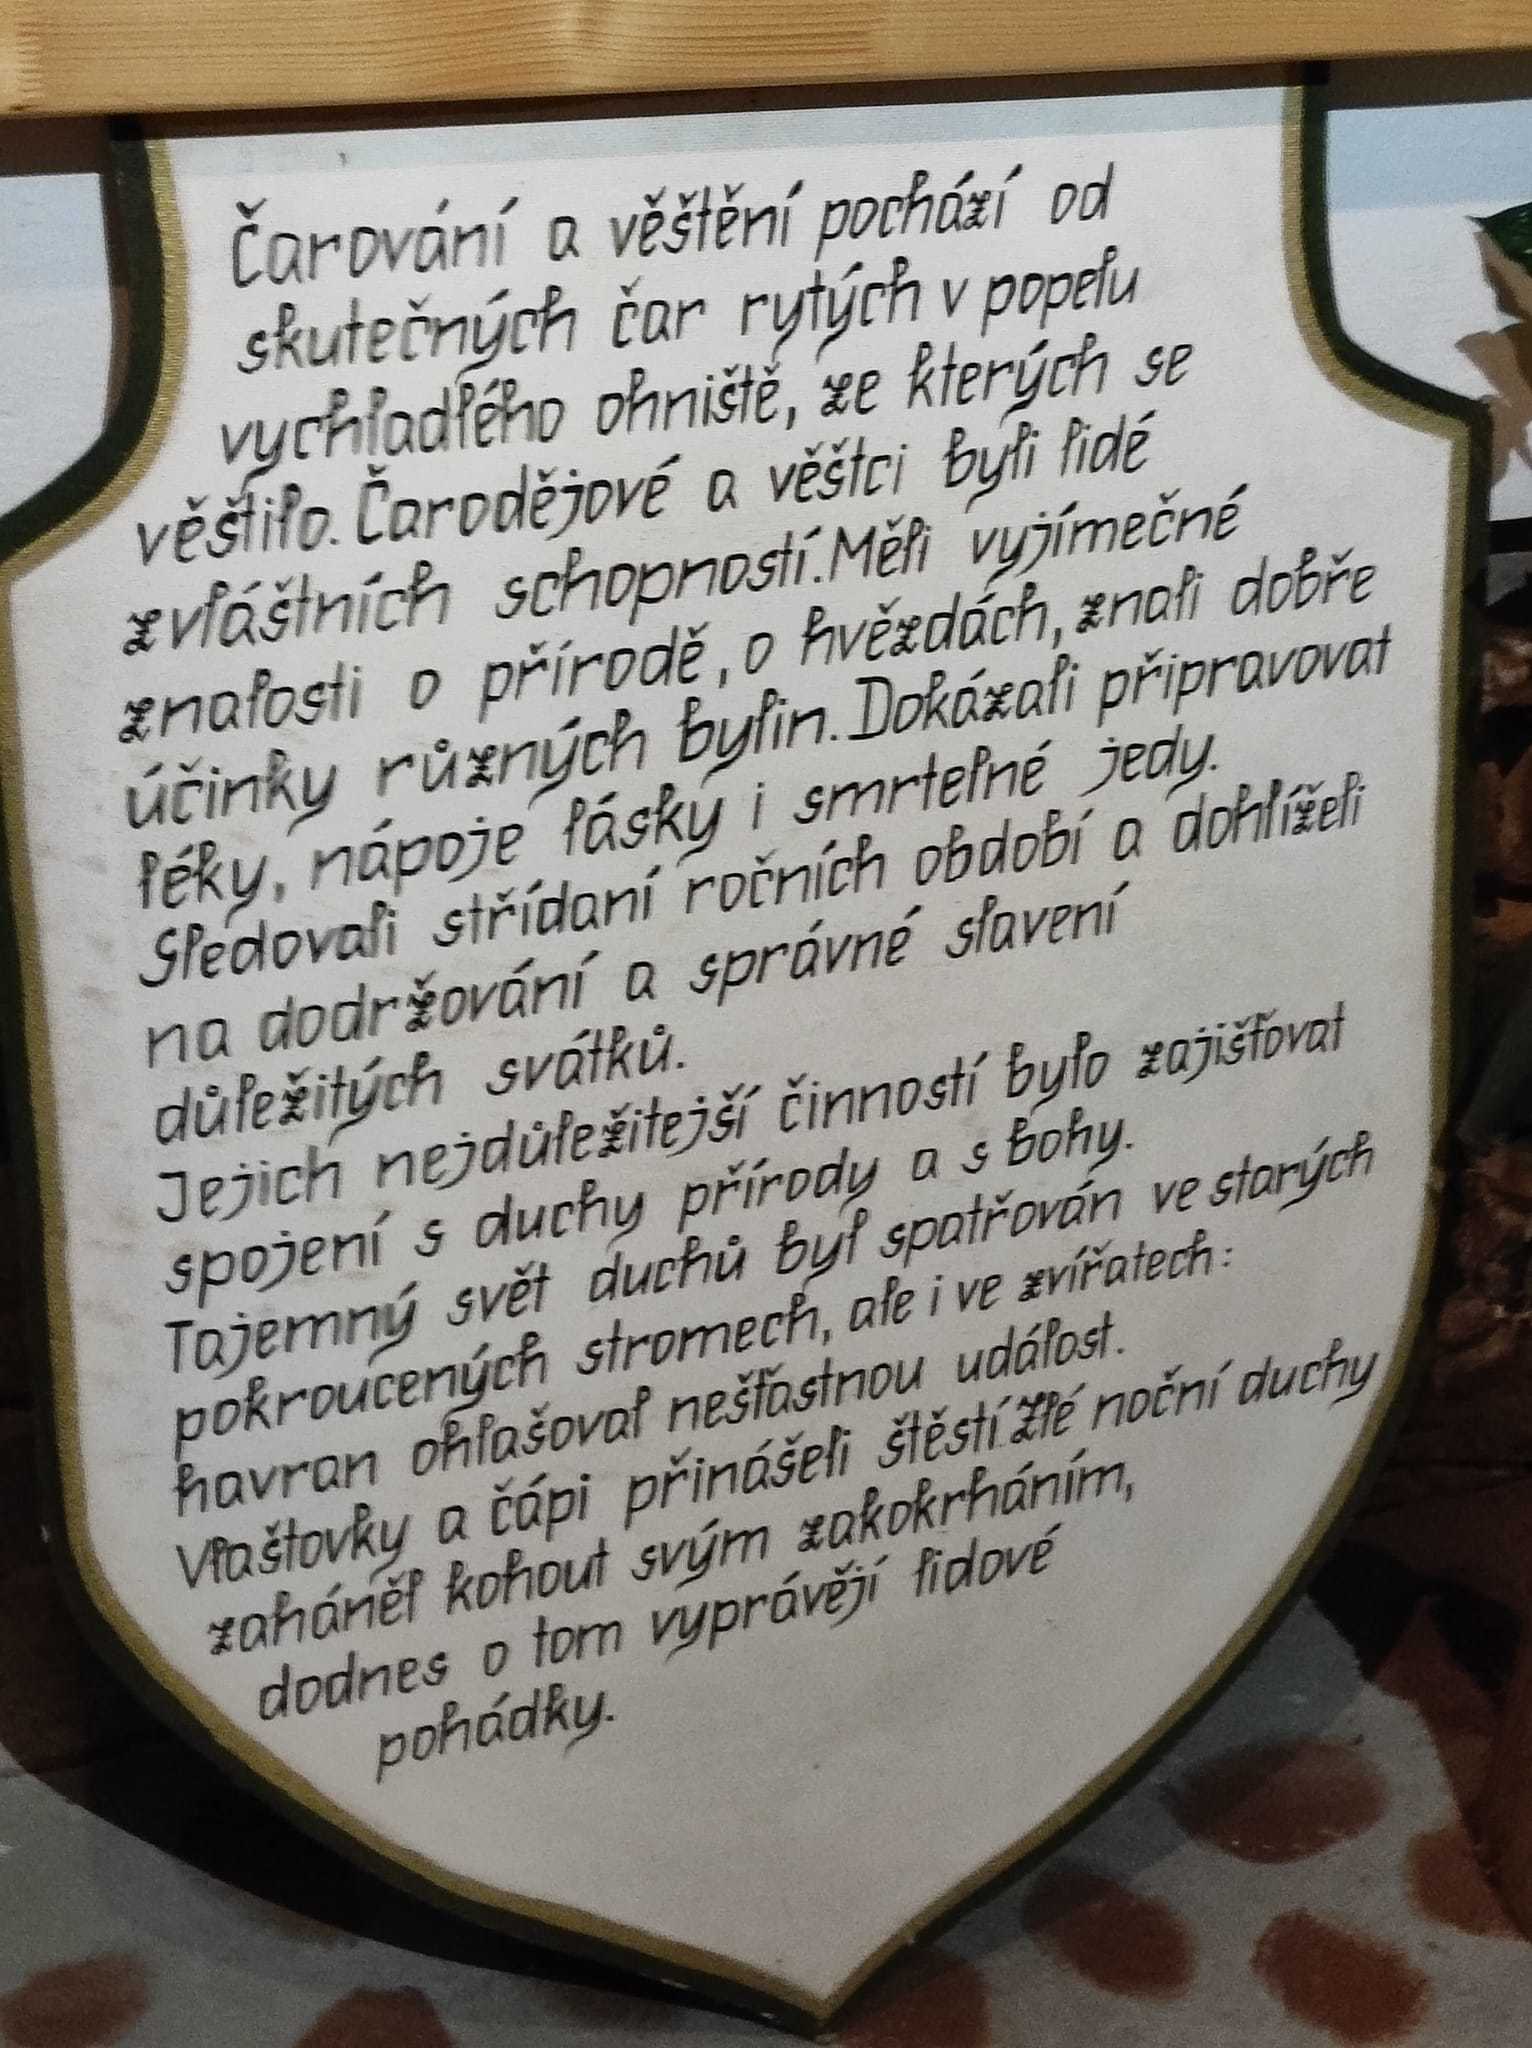 Čarování a věštění pochází od
skutečných čar rytých v popelu
vychladlého ohniště, ze kterých se
věštilo. Čarodějové a věštci byli lidé
zvláštních schopností. Měli vyjímečné
znalosti o přírodě, o hvězdách, znali dobře
účinky různých bylin. Dokázali připravovat
léky, nápoje lásky i smrtelné jedy.
Sledovali střídaní ročních období a dohlíželi
na dodržování a správné slavení
důležitých svátků.
Jejich nejdůležitejší činností bylo zajišťovat
spojení s duchy přírody a s bohy.
Tajemný svět duchů byl spatřován ve starých
pokroucených stromech, ale i ve zvířatech:
havran ohlašoval nešťastnou událost.
Vlaštovky a čápi přinášeli štěstí. Zlé noční duchy
zaháněl kohout svým zakokrháním,
dodnes o tom vyprávějí lidové
pohádky.